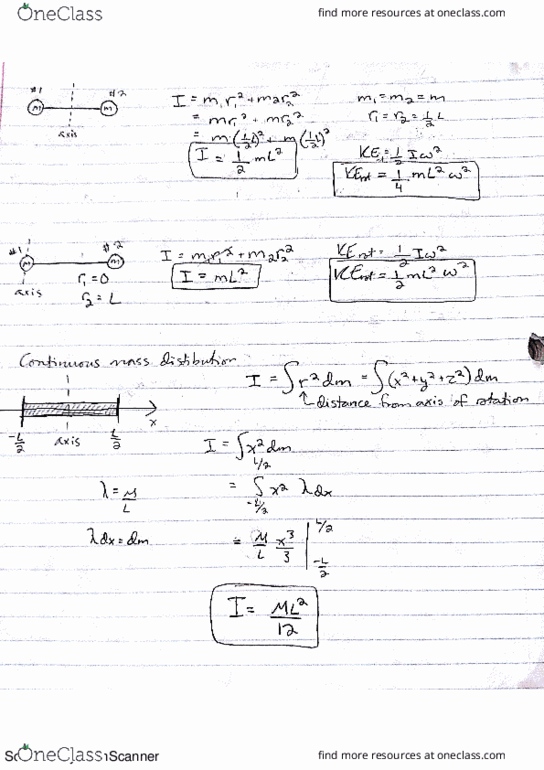 OneClass
find more resources at oneclass.com
#1 #2
m m
axis
I = m₁r₁² + m₂r₂²
= mr₁² + mr₂²
= m(½L)² + m(½L)²
I = ½ mL²
m₁ = m₂ = m
r₁ = r₂ = ½ L
KE = ½ Iω²
KE_rot = ¼ mL²ω²
#1 #2
m m
axis
r₁ = 0
r₂ = L
I = m₁r₁² + m₂r₂²
I = mL²
KE_rot = ½ Iω²
KE_rot = ½ mL²ω²
Continuous mass distibution
I = ∫r²dm = ∫(x²+y²+z²)dm
↑distance from axis of rotation
-L/2 axis L/2 x
I = ∫x²dm
λ = M/L
= ∫_{-L/2}^{L/2} x² λdx
λdx = dm
= M/L x³/3 |_{-L/2}^{L/2}
I = ML²/12
OneClass
Scanner
find more resources at oneclass.com